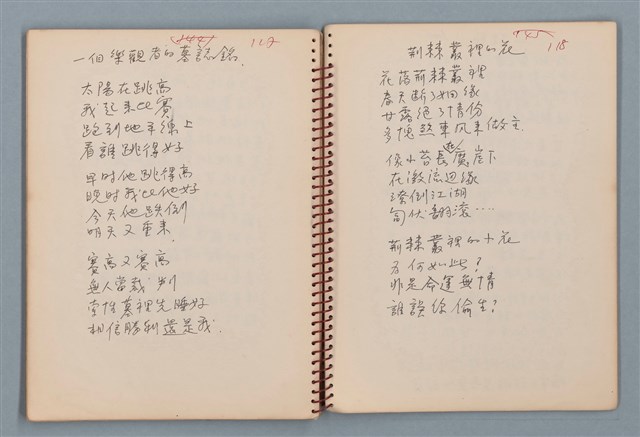 117
一個樂觀者的墓誌銘
太陽在跳高
我起來比賽
跑到地平線上
看誰跳得好
早时他跳得高
晚时我比他好
今天他跌倒
明天又重来
賽高又賽高
無人當裁判
索性墓裡先睡好
相信勝利還是我
118
荊棘叢裡的花
花落荊棘叢裡
春天断了姻缘
甘露绝了情份
多愧煞東风来做主
像小苔長 崖下
在激流边缘
潦倒江湖
匍伏翻滚····
荊棘叢裡的小花
为何如此？
非是命運無情
誰説你偷生？